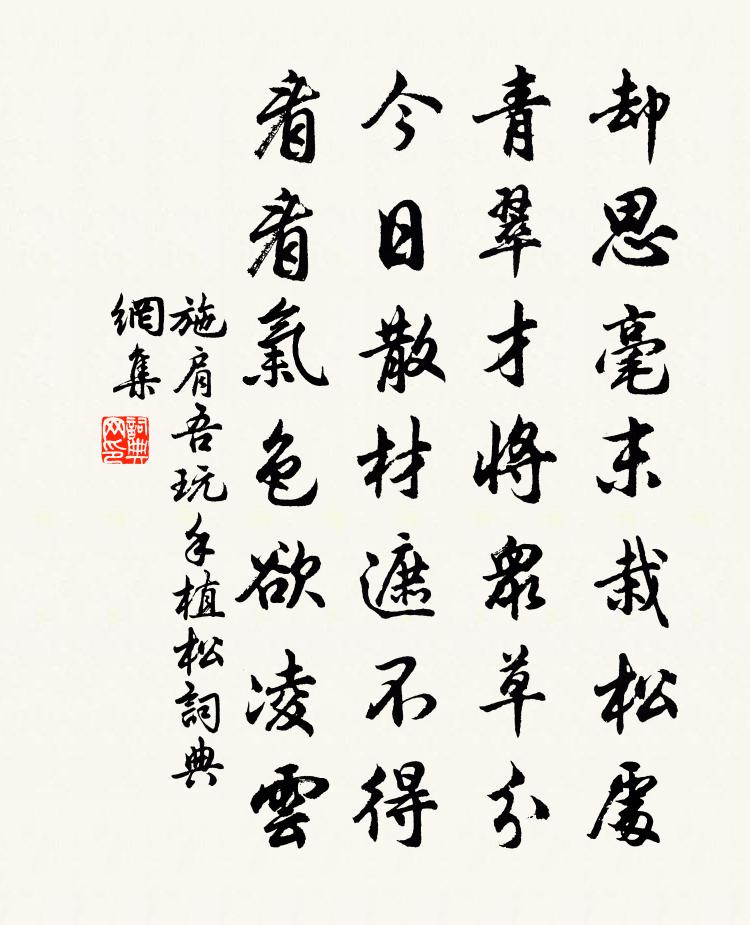 却思毫末栽松處
青翠才將眾草分
今日散材遮不得
看看氣色欲凌雲
施肩吾玩手植松詞典
網集
詞典網印